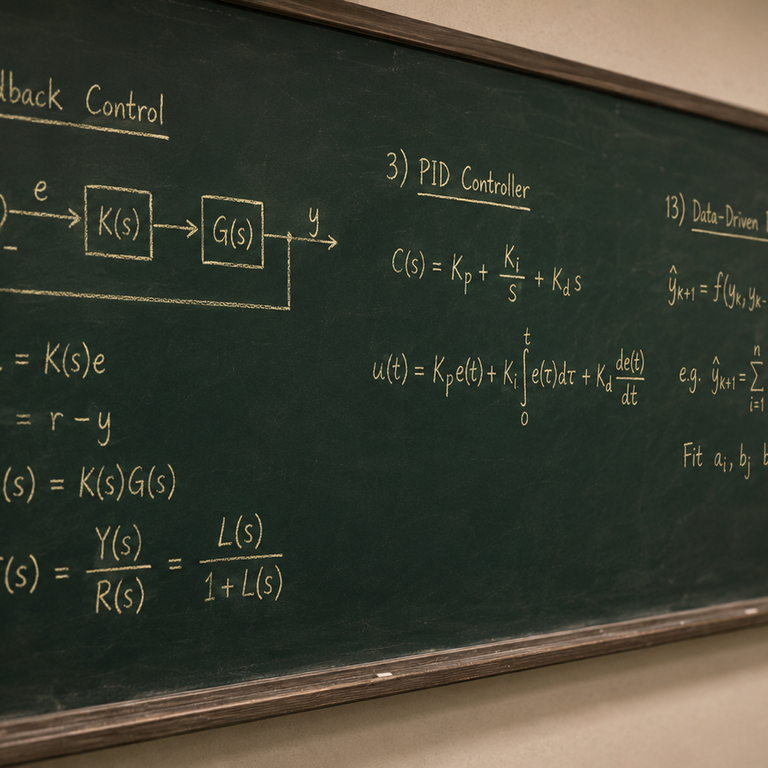 Control
e
K(s)
G(s)
y
−
= K(s)e
= r − y
(s) = K(s)G(s)
(s) = Y(s)/R(s) = L(s)/(1 + L(s))
3) PID Controller
C(s) = K_p + K_i/s + K_d s
u(t) = K_p e(t) + K_i ∫_0^t e(τ)dτ + K_d de(t)/dt
13) Data-Driven
ŷ_{k+1} = f(y_k, y_{k-
e.g. ŷ_{k+1} = ∑_{i=1}^n
Fit a_i, b_j